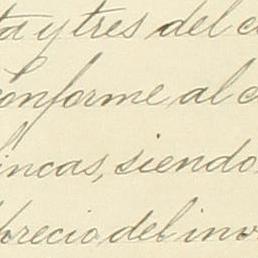 ta y tres del c
conforme al c
incas, siendo
precio del inv